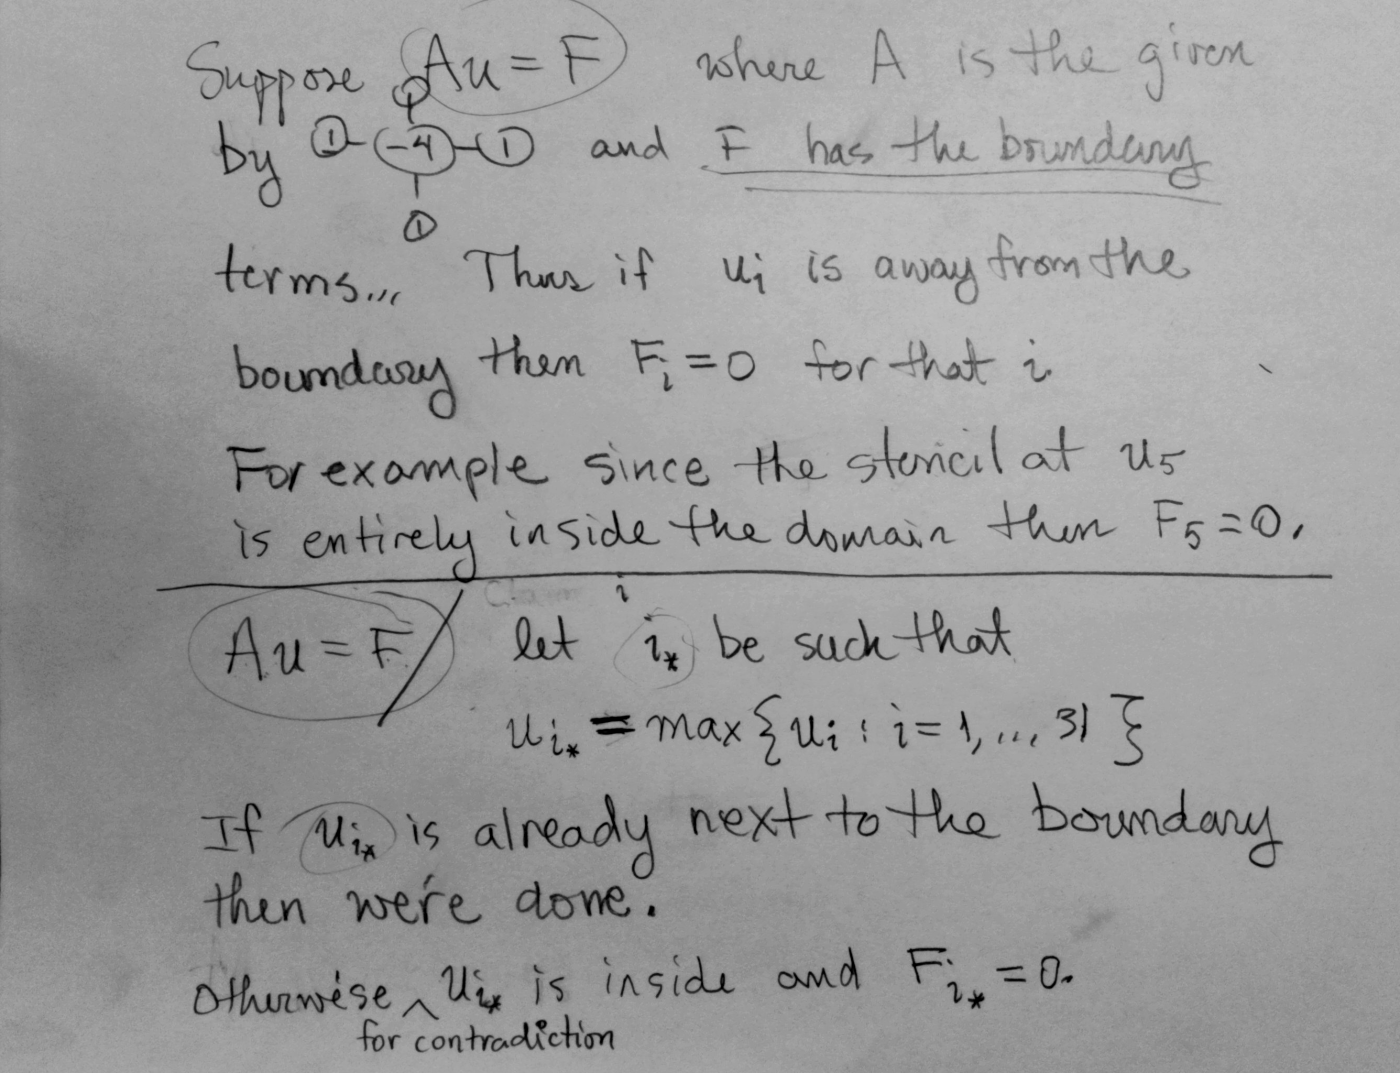 Suppose Au = F where A is the given
1
by 1 -4 1 and F has the boundary
1
terms... Thus if ui is away from the
boundary then Fi = 0 for that i
For example since the stencil at u5
is entirely inside the domain then F5 = 0.
Claim i
Au = F / let i* be such that
ui* = max{ui : i = 1, ..., 31}
If ui* is already next to the boundary
then we're done.
Otherwise ^ ui* is inside and Fi* = 0.
for contradiction